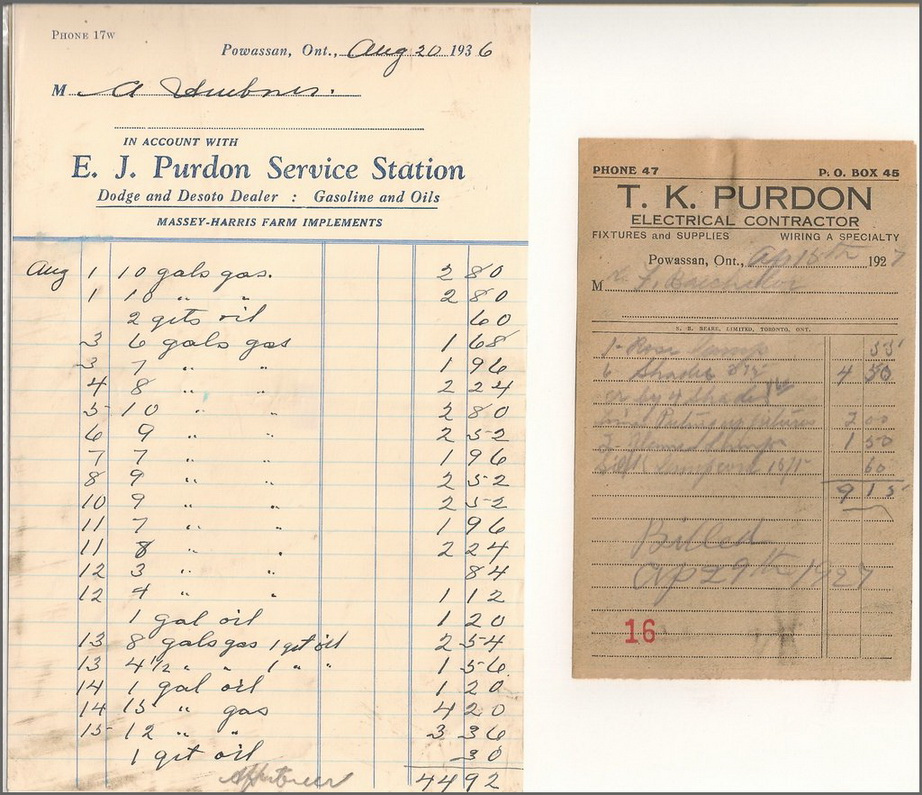 PHONE 17W
Powassan, Ont., Aug 20 1936
M A
IN ACCOUNT WITH
E. J. Purdon Service Station
Dodge and Desoto Dealer : Gasoline and Oils
MASSEY-HARRIS FARM IMPLEMENTS
Aug 1 10 gals gas. 2 80
1 10 " " 2 80
2 qts oil 60
3 6 gals gas 1 68
3 7 " " 1 96
4 8 " " 2 24
5 10 " " 2 80
6 9 " " 2 52
7 7 " " 1 96
8 9 " " 2 52
10 9 " " 2 52
11 7 " " 1 96
11 8 " " 2 24
12 3 " " 84
12 4 " " 1 12
1 gal oil 1 20
13 8 gals gas 1 qt oil 2 54
13 4 1/2 " " 1 " " 1 56
14 1 gal oil 1 20
14 15 " gas 4 20
15 12 " " 3 36
1 qt oil 30
44 92
PHONE 47 P. O. BOX 45
T. K. PURDON
ELECTRICAL CONTRACTOR
FIXTURES and SUPPLIES WIRING A SPECIALTY
Powassan, Ont., Ap 18th 1927
M F.
LIMITED, TORONTO, ONT.
1 Rose lamp 55
6 Shades 4 50
2 00
2 lamps 1 50
60
9 15
Billed
Ap 29th 1927
16